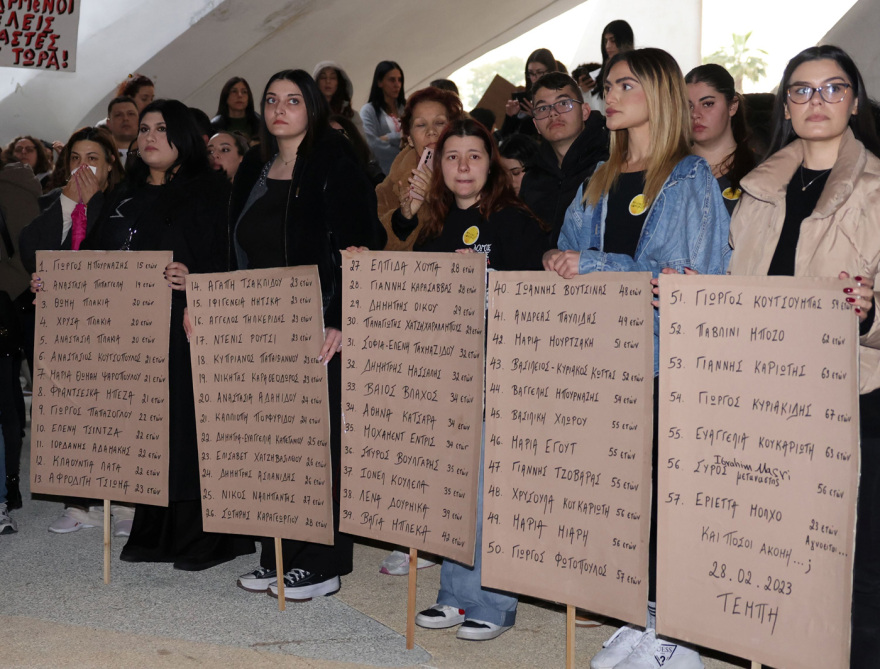 ΡΜΕΝΟΙ
ΕΛΕΙΣ
ΑΣΤΕΣ
ΤΩΡΑ!
1. ΓΙΩΡΓΟΣ ΜΠΟΥΡΝΑΖΗΣ 15 ετών
2. ΑΝΑΣΤΑΣΙΑ ΠΑΠΑΓΓΕΛΗ 19 ετών
3. ΘΩΜΗ ΠΛΑΚΙΑ 20 ετών
4. ΧΡΥΣΑ ΠΛΑΚΙΑ 20 ετών
5. ΑΝΑΣΤΑΣΙΑ ΠΛΑΚΙΑ 20 ετών
6. ΑΝΑΣΤΑΣΙΟΣ ΚΟΥΤΣΟΠΟΥΛΟΣ 21 ετών
7. ΜΑΡΙΑ ΘΩΜΑΗ ΨΑΡΟΠΟΥΛΟΥ 21 ετών
8. ΦΡΑΝΤΣΕΣΚΑ ΜΠΕΖΑ 21 ετών
9. ΓΙΩΡΓΟΣ ΠΑΠΑΖΟΓΛΟΥ 22 ετών
10. ΕΛΕΝΗ ΤΣΙΝΤΖΑ 22 ετών
11. ΙΟΡΔΑΝΗΣ ΑΔΑΜΑΚΗΣ 22 ετών
12. ΚΛΑΟΥΝΤΙΑ ΛΑΤΑ 22 ετών
13 ΑΦΡΟΔΙΤΗ ΤΣΙΩΜΑ 23 ετών
14. ΑΓΑΠΗ ΤΣΑΚΛΙΔΟΥ 23 ετών
15. ΙΦΙΓΕΝΕΙΑ ΜΗΤΣΚΑ 23 ετών
16. ΑΓΓΕΛΟΣ ΤΗΛΚΕΡΙΔΗΣ 23 ετών
17. ΝΤΕΝΙΣ ΡΟΥΤΣΙ 23 ετών
18. ΚΥΠΡΙΑΝΟΣ ΠΑΠΑΪΩΑΝΝΟΥ 23 ετών
19. ΝΙΚΗΤΑΣ ΚΑΡΑΘΕΟΔΩΡΟΣ 23 ετών
20. ΑΝΑΣΤΑΣΙΑ ΑΔΑΜΙΔΟΥ 24 ετών
21. ΚΑΛΛΙΟΠΗ ΠΟΡΦΥΡΙΔΟΥ 24 ετών
22. ΔΗΜΗΤΡΑ-ΕΥΑΓΓΕΛΙΑ ΚΑΠΕΤΑΝΙΟΥ 25 ετών
23. ΕΛΙΣΑΒΕΤ ΧΑΤΖΗΒΑΣΙΛΕΙΟΥ 25 ετών
24. ΔΗΜΗΤΡΗΣ ΑΣΛΑΝΙΔΗΣ 26 ετών
25. ΝΙΚΟΣ ΝΑΛΜΠΑΝΤΗΣ 27 ετών
26. ΣΩΤΗΡΗΣ ΚΑΡΑΓΕΩΡΓΙΟΥ 28 ετών
27. ΕΛΠΙΔΑ ΧΟΥΠΑ 28 ετών
28. ΓΙΑΝΝΗΣ ΚΑΡΑΣΑΒΒΑΣ 28 ετών
29. ΔΗΜΗΤΡΗΣ ΟΙΚΟΥ 29 ετών
30. ΠΑΝΑΓΙΩΤΗΣ ΧΑΤΖΗΧΑΡΑΛΑΜΠΟΥΣ 29 ετών
31. ΣΟΦΙΑ-ΕΛΕΝΗ ΤΑΧΜΑΖΙΔΟΥ 32 ετών
32. ΔΗΜΗΤΡΗΣ ΜΑΣΣΑΛΗΣ 32 ετών
33. ΒΑΙΟΣ ΒΛΑΧΟΣ 34 ετών
34. ΑΘΗΝΑ ΚΑΤΣΑΡΑ 34 ετών
35. ΜΟΧΑΜΕΝΤ ΕΝΤΡΙΣ 34 ετών
36. ΣΠΥΡΟΣ ΒΟΥΛΓΑΡΗΣ 35 ετών
37. ΙΟΝΕΛ ΚΟΥΛΕΑ 35 ετών
38. ΛΕΝΑ ΔΟΥΡΜΙΚΑ 39 ετών
39. ΒΑΓΙΑ ΜΠΛΕΚΑ 42 ετών
40. ΙΩΑΝΝΗΣ ΒΟΥΤΣΙΝΑΣ 48 ετών
41. ΑΝΔΡΕΑΣ ΠΑΥΛΙΔΗΣ 49 ετών
42. ΜΑΡΙΑ ΜΟΥΡΤΖΑΚΗ 51 ετών
43. ΒΑΣΙΛΕΙΟΣ-ΚΥΡΙΑΚΟΣ ΚΩΤΤΑΣ 52 ετών
44. ΒΑΓΓΕΛΗΣ ΜΠΟΥΡΝΑΖΗΣ 54 ετών
45. ΒΑΣΙΛΙΚΗ ΧΛΩΡΟΥ 55 ετών
46. ΜΑΡΙΑ ΕΓΟΥΤ 55 ετών
47. ΓΙΑΝΝΗΣ ΤΖΟΒΑΡΑΣ 55 ετών
48. ΧΡΥΣΟΥΛΑ ΚΟΥΚΑΡΙΩΤΗ 56 ετών
49. ΜΑΡΙΑ ΜΙΑΡΗ 56 ετών
50. ΓΙΩΡΓΟΣ ΦΩΤΟΠΟΥΛΟΣ 57 ετών
51. ΓΙΩΡΓΟΣ ΚΟΥΤΣΟΥΜΠΑΣ 59 ετών
52. ΠΑΒΛΙΝΙ ΜΠΟΖΟ 62 ετών
53. ΓΙΑΝΝΗΣ ΚΑΡΙΩΤΗΣ 63 ετών
54. ΓΙΩΡΓΟΣ ΚΥΡΙΑΚΙΔΗΣ 67 ετών
55. ΕΥΑΓΓΕΛΙΑ ΚΟΥΚΑΡΙΩΤΗ 63 ετών
56. ΣΥΡΟΣ μετανάστης 56 ετών
57. ΕΡΙΕΤΤΑ ΜΟΛΧΟ 23 ετών
Αγνοείται...
ΚΑΙ ΠΟΣΟΙ ΑΚΟΜΗ...;
28.02.2023
ΤΕΜΠΗ